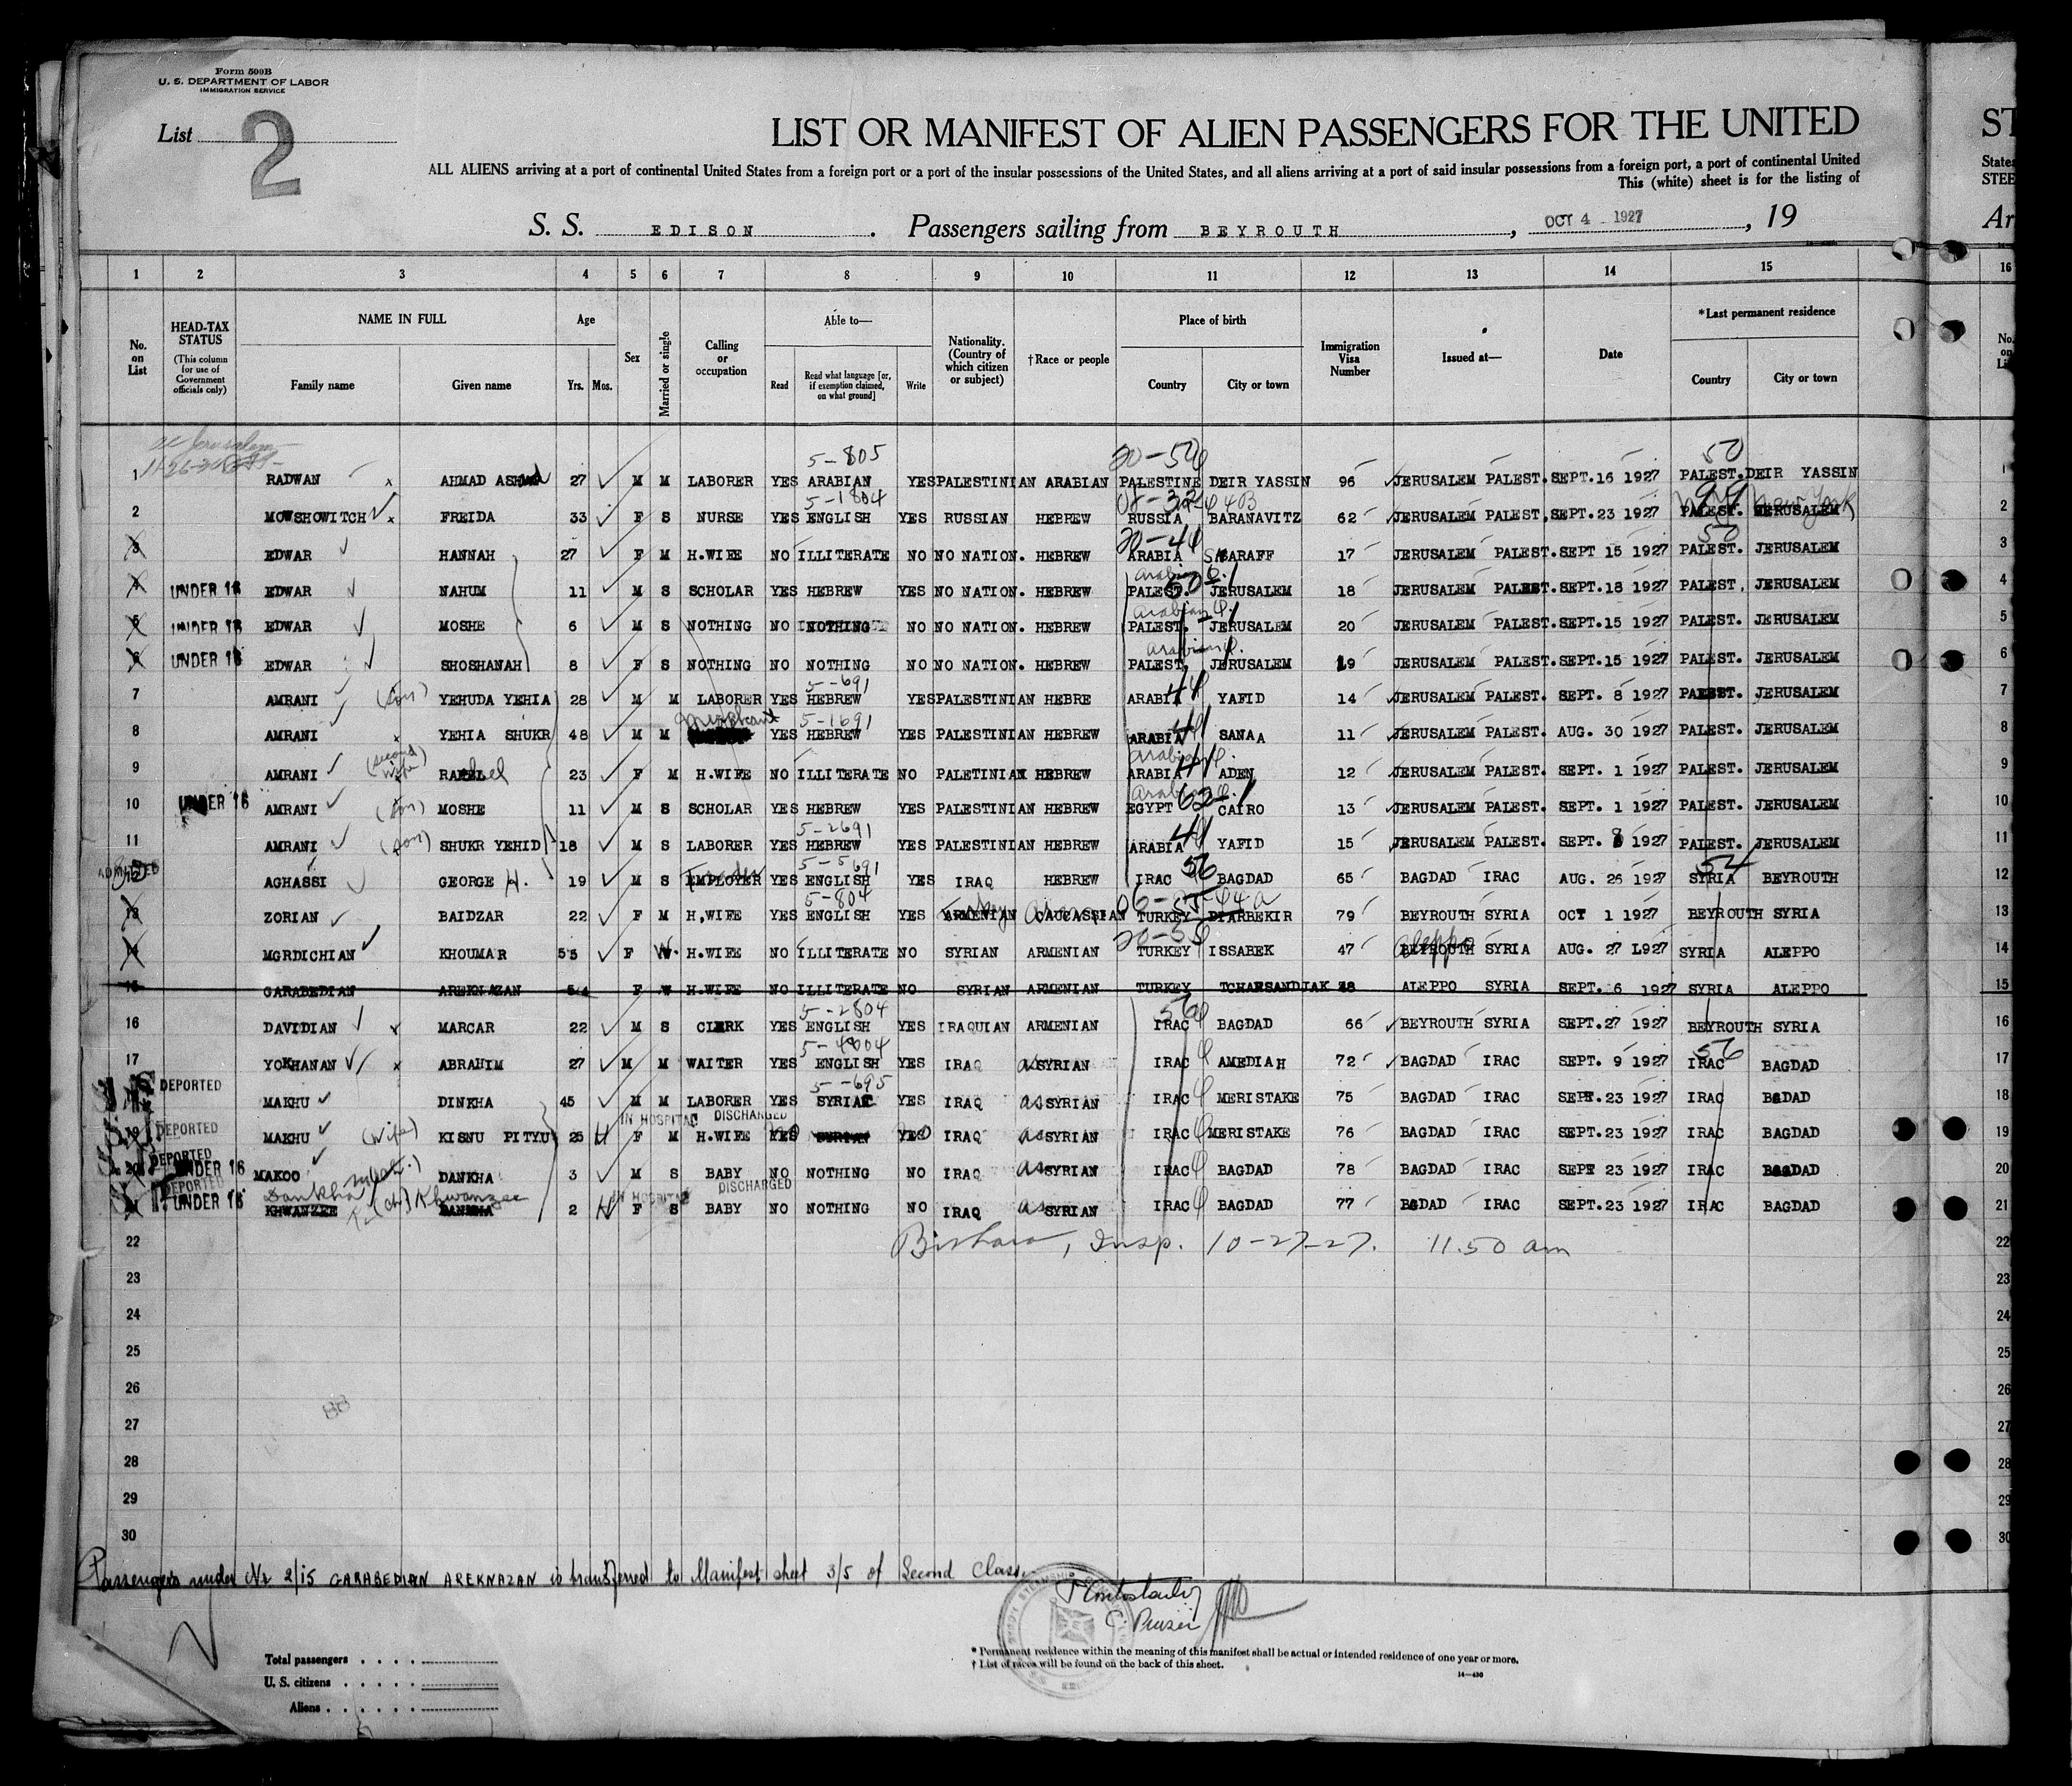 Form 500B
U. S. DEPARTMENT OF LABOR
IMMIGRATION SERVICE
List 2
LIST OR MANIFEST OF ALIEN PASSENGERS FOR THE UNITED
ST
ALL ALIENS arriving at a port of continental United States from a foreign port or a port of the insular possessions of the United States, and all aliens arriving at a port of said insular possessions from a foreign port, a port of continental United
States
This (white) sheet is for the listing of
STEE
S. S. EDISON. Passengers sailing from BEYROUTH, OCT 4 1927, 19
Ar
1 2 3 4 5 6 7 8 9 10 11 12 13 14 15 16
No. on List
HEAD-TAX STATUS (This column for use of Government officials only)
NAME IN FULL
Family name Given name
Age
Yrs. Mos.
Sex
Married or single
Calling or occupation
Able to—
Read Read what language [or, if exemption claimed, on what ground] Write
Nationality. (Country of which citizen or subject)
†Race or people
Place of birth
Country City or town
Immigration Visa Number
Issued at—
Date
*Last permanent residence
Country City or town
5-805 20-50 50
1 RADWAN x AHMAD 27 M M LABORER YES ARABIAN YES PALESTINIAN ARABIAN PALESTINE DEIR YASSIN 96 JERUSALEM PALEST. SEPT.16 1927 PALEST. DEIR YASSIN 1
5-1804 New York
2 MOWSHOWITCH x FREIDA 33 F S NURSE YES ENGLISH YES RUSSIAN HEBREW RUSSIA BARANAVITZ 62 JERUSALEM PALEST. SEPT.23 1927 PALEST. JERUSALEM 2
20-44 50
3 EDWAR HANNAH 27 F M H.WIFE NO ILLITERATE NO NO NATION. HEBREW ARABIA SHARAFF 17 JERUSALEM PALEST. SEPT 15 1927 PALEST. JERUSALEM 3
4 UNDER 16 EDWAR NAHUM 11 M S SCHOLAR YES HEBREW YES NO NATION. HEBREW PALEST. JERUSALEM 18 JERUSALEM PALEST. SEPT.18 1927 PALEST. JERUSALEM 4
5 UNDER 16 EDWAR MOSHE 6 M S NOTHING NO NOTHING NO NO NATION. HEBREW PALEST. JERUSALEM 20 JERUSALEM PALEST. SEPT.15 1927 PALEST. JERUSALEM 5
6 UNDER 16 EDWAR SHOSHANAH 8 F S NOTHING NO NOTHING NO NO NATION. HEBREW PALEST. JERUSALEM 19 JERUSALEM PALEST. SEPT.15 1927 PALEST. JERUSALEM 6
5-691
7 AMRANI (son) YEHUDA YEHIA 28 M M LABORER YES HEBREW YES PALESTINIAN HEBRE ARABIA YAFID 14 JERUSALEM PALEST. SEPT. 8 1927 PALEST. JERUSALEM 7
Merchant 5-1691
8 AMRANI YEHIA SHUKR 48 M M YES HEBREW YES PALESTINIAN HEBREW ARABIA SANAA 11 JERUSALEM PALEST. AUG. 30 1927 PALEST. JERUSALEM 8
9 AMRANI (second wife) 23 F M H.WIFE NO ILLITERATE NO PALETINIAN HEBREW ARABIA ADEN 12 JERUSALEM PALEST. SEPT. 1 1927 PALEST. JERUSALEM 9
10 UNDER 16 AMRANI (son) MOSHE 11 M S SCHOLAR YES HEBREW YES PALESTINIAN HEBREW EGYPT CAIRO 13 JERUSALEM PALEST. SEPT. 1 1927 PALEST. JERUSALEM 10
5-2691
11 AMRANI (son) SHUKR YEHID 18 M S LABORER YES HEBREW YES PALESTINIAN HEBREW ARABIA YAFID 15 JERUSALEM PALEST. SEPT. 8 1927 PALEST. JERUSALEM 11
ADMITTED 5-5691 56 54
AGHASSI GEORGE H. 19 M S EMPLOYER YES ENGLISH YES IRAQ HEBREW IRAC BAGDAD 65 BAGDAD IRAC AUG. 26 1927 SYRIA BEYROUTH 12
5-804
13 ZORIAN BAIDZAR 22 F M H,WIFE YES ENGLISH YES Turkey ARMENIAN CAUCASSIAN TURKEY DIARBEKIR 79 BEYROUTH SYRIA OCT 1 1927 BEYROUTH SYRIA 13
14 MGRDICHIAN KHOUMAR 55 F W. H.WIFE NO ILLITERATE NO SYRIAN ARMENIAN TURKEY ISSABEK 47 Aleppo BEYROUTH SYRIA AUG. 27 L927 SYRIA ALEPPO 14
15 GARABEDIAN AREKNAZAN 54 F W H.WIFE NO ILLITERATE NO SYRIAN ARMENIAN TURKEY TCHARSANDJAK 48 ALEPPO SYRIA SEPT. 6 1927 SYRIA ALEPPO 15
5-2804 56
16 DAVIDIAN x MARCAR 22 M S CLERK YES ENGLISH YES IRAQUIAN ARMENIAN IRAC BAGDAD 66 BEYROUTH SYRIA SEPT.27 1927 BEYROUTH SYRIA 16
5-4804 56
17 YOKHANAN x ABRAHIM 27 M M WAITER YES ENGLISH YES IRAQ asSYRIAN IRAC AMEDIAH 72 BAGDAD IRAC SEPT. 9 1927 IRAC BAGDAD 17
5-695
DEPORTED MAKHU DINKHA 45 M M LABORER YES SYRIAC YES IRAQ asSYRIAN IRAC MERISTAKE 75 BAGDAD IRAC SEPT.23 1927 IRAC BADAD 18
IN HOSPITAL DISCHARGED
19 DEPORTED MAKHU (wife) KISNU PITYU 25 H F M H.WIFE YES SYRIAN YES IRAQ asSYRIAN IRAC MERISTAKE 76 BAGDAD IRAC SEPT.23 1927 IRAC BAGDAD 19
20 DEPORTED UNDER 16 MAKOO DANKHA 3 M S BABY NO NOTHING NO IRAQ asSYRIAN IRAC BAGDAD 78 BAGDAD IRAC SEPT 23 1927 IRAC BAGDAD 20
DEPORTED Dankha (ch) Khwanzee IN HOSPITAL DISCHARGED
UNDER 16 KHWANZEE DANKHA 2 H F S BABY NO NOTHING NO IRAQ asSYRIAN IRAC BAGDAD 77 BGDAD IRAC SEPT.23 1927 IRAC BAGDAD 21
22 Bishara, Insp. 10-27-27. 11.50 am 22
23 23
24 24
25 25
26 26
27 27
28 28
29 29
30 30
Passengers under Nr 2/15 GARABEDIAN AREKNAZAN is transferred to Manifest sheet 3/5 of Second Class.
Total passengers
U. S. citizens
Aliens
* Permanent residence within the meaning of this manifest shall be actual or intended residence of one year or more.
† List of races will be found on the back of this sheet.
14—430